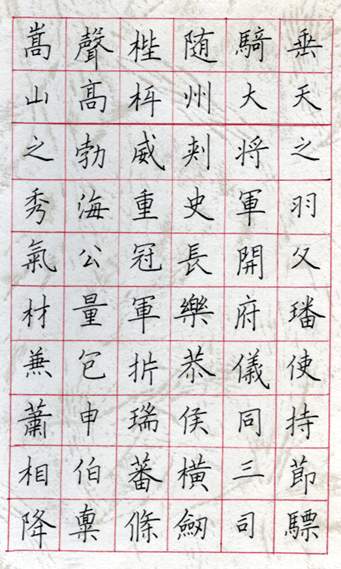 垂天之羽父璠使持節驃
騎大将軍開府儀同三司
随州刾史長樂恭侯橫劒
梐威重冠軍折瑞蕃條
聲高勃海公量包申伯稟
嵩山之秀氣材兼蕭相降